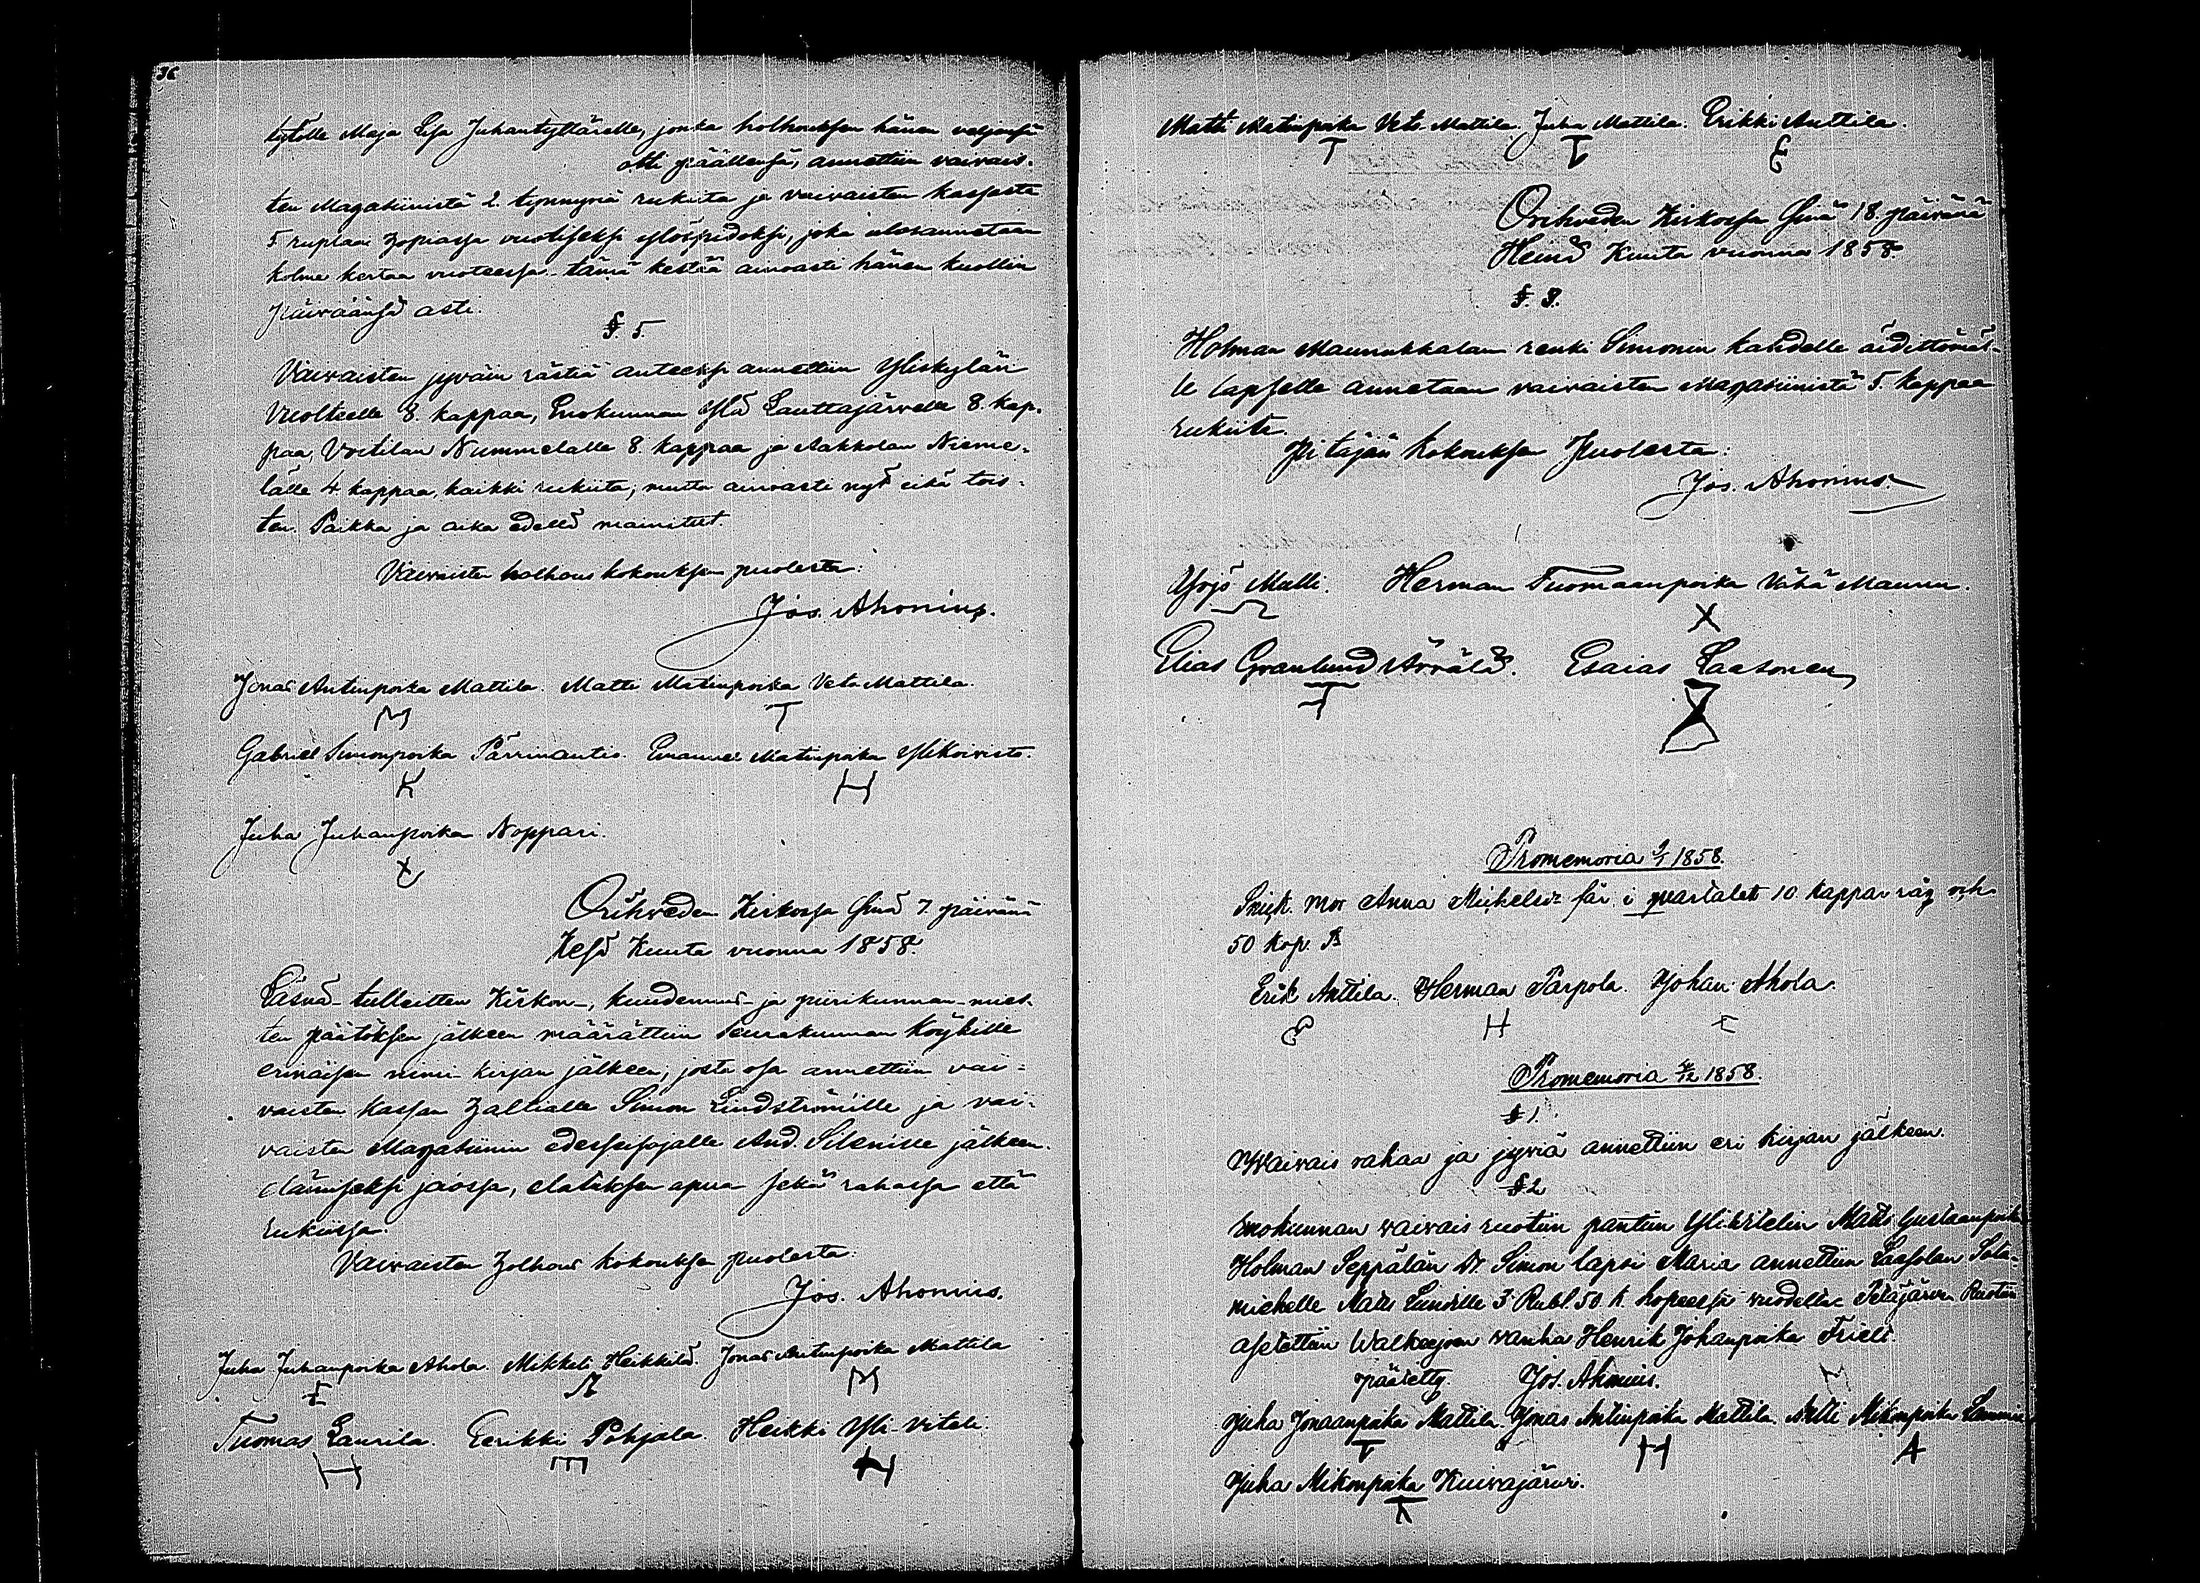 36
tytölle Maja Lisa Juhantyttärelle, jonka holhouksen hänen veljensä
otti päällensä, annettiin vaivais-
ten Magasiinista 2. tynnyriä rukiita ja vaivaisten kassasta
5 ruplaa hopiassa vuotiseksi ylöspidoksi, joka ulosannetaan
kolme kertaa vuoteessa tämä kestää ainoasti hänen kuollin
päiväänsä asti.
§ 5.
Vaivaisten jyväin rästiä anteeksi annettiin Yliskylän
Vuolteelle 8. kappaa, Enokunnan Ylä Lauttajärvelle 8. kap-
paa, Voitilan Nummelalle 8. kappaa ja Aakkolan Nieme-
lälle 4 kappaa, kaikki rukiita; mutta ainoasti nyt eikä tois-
ten. Paikka ja aika edellä mainitut.
Vaivaisten holhous kokouksen puolesta:
Jos. Ahonius.
Jonas Antinpoika Mattila. Matti Matinpoika Veto Mattila.
M T
Gabriel Simonpoika Pärrinantis. Emanuel Matinpoika Ylikoivisto.
K H
Juha Juhanpoika Noppari.
Orihveden Kirkossa Sinä 7. päivänä
Kesä Kuuta vuonna 1858.
Läsnä-tulleitten Kirkon-, kuudennus- ja piirikunnan-mies-
ten päätöksen jälkeen määrättiin Seurakunnan Köyhille
erinäisen nimi-kirjan jälkeen, josta osa annettiin vai-
vaisten kassan haltialle Simon Lindströmille ja vai-
vaisten Magasiinin edesseisojalle And. Sileniille jälkeen-
elämiseksi jaossa, elatuksen apua sekä rahassa että
rukiissa.
Vaivaisten holhous kokouksen puolesta:
Jos. Ahonius.
Juha Juhanpoika Ahola. Mikkeli Heikkilä. Jonas Antinpoika Mattila
M
Tuomas Laurila. Eerikki Pohjala. Heikki Yli-Vitali
H E H
Matti Matinpoika Veto-Mattila. Juha Mattila. Erikki Anttila.
T T E
Orihveden Kirkossa Sinä 18. päivänä
Heinä Kuuta vuonna 1858.
§. 8.
Holman Maunukkalan renki Simonin kahdelle äidittömäl-
le lapselle annetaan vaivaisten Magasiinista 5. kappaa
rukiita.
Pitäjän Kokouksen Puolesta:
Jos. Ahonius.
Yrjö Malli. Herman Tuomaanpoika Vähä Maunu.
X
Elias Granlund Sörälä. Esaias Laasonen
T
Promemoria 9/1 1858.
Snick. mor Anna Michelsr får i quartalet 10. kappar råg och
50 kop. Sr
Erik Anttila. Herman Parpola. Johan Ahola.
E H E
Promemoria 5/12 1858.
§ 1.
Waivais rahaa ja jyviä annettiin eri kirjan jälkeen.
§ 2
Enokunnan vaivais ruotiin pantiin Ylihitelin Matts Gustaanpoika
Holman Seppälän Dr. Simon lapsi Maria annettiin Laasolan Sota-
miehelle Matts Lundille 3 Rubl. 50 k. hopeessa vuodella Petäjärven Ruotiin
asetettiin Walkeejoen vanha Henrik Johanpoika Frieli.
päätetty. Jos. Ahonius.
Juha Jonaanpoika Mattila Jonas Antinpoika Mattila Antti Mikonpoika Lammi
T H A
Juha Mikonpoika Kuivajärvi.
K